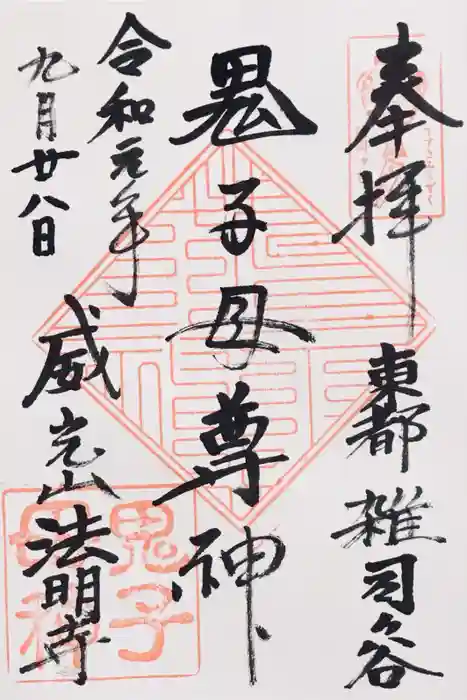 奉拝
東都 雑司谷
鬼子母尊神
令和元年
九月廿八日
威光山 法明寺
鬼子母神